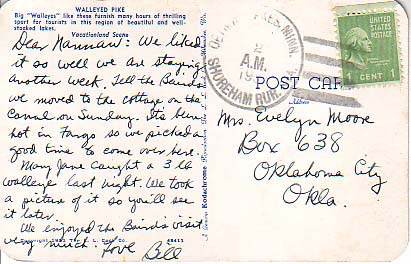 WALLEYED PIKE
Big "Walleyes" like these furnish many hours of thrilling
sport for tourists in this region of beautiful and well-
stocked lakes.
Vacationland Scene
Dear Nannaw: We liked
it so well we are staying
another week. Tell the Bairds
we moved to the cottage on the
Canal on Sunday. Its been
hot in Fargo so we picked a
good time to come over here.
Mary Jane caught a 3 lb
walleye last night. We took
a picture of it so you'll see
it later.
We enjoyed the Baird's visit
very much. Love Bill
Kodachrome
MINN
A.M.
19
SHOREHAM RUR.
POST CARD
Address
UNITED
STATES
POSTAGE
1 CENT 1
Mrs. Evelyn Moore
Box 638
Oklahoma City
Okla.